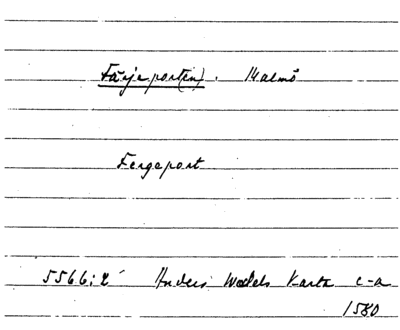 Färjeporten). Malmö
Fergeport
5566:2 Anders Wedels Karta c-a
1580